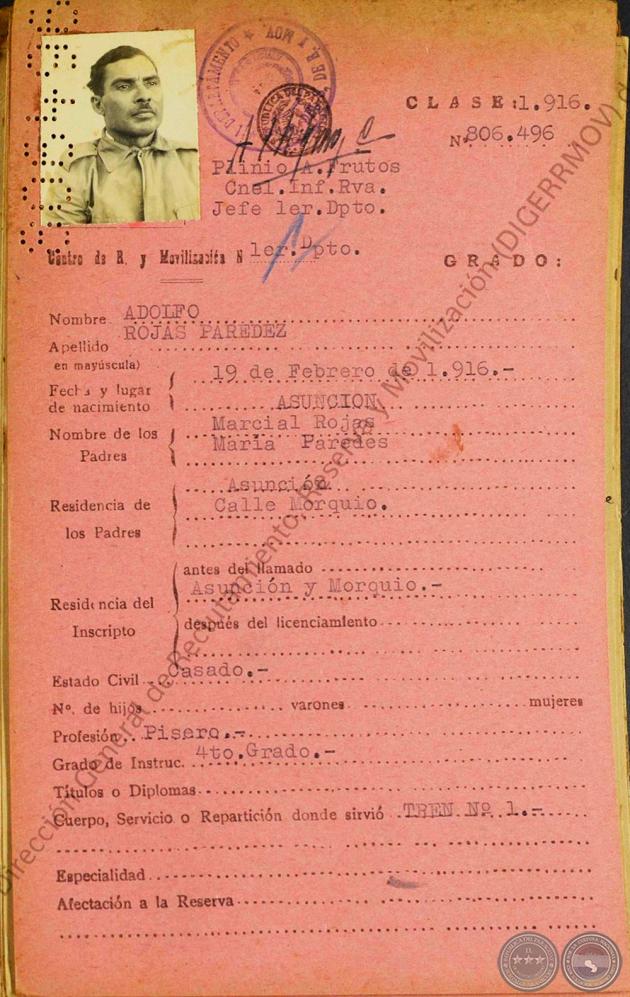 CLASE:1.916.
Nº 806.496
Plinio A.Frutos
Cnel.Inf.Rva.
Jefe 1er.Dpto.
Centro de R. y Movilización N 1er.Dpto.
GRADO:
Nombre ADOLFO
ROJAS PAREDEZ
Apellido
en mayúscula)
Fecha y lugar de nacimiento 19 de Febrero de 1.916.-
ASUNCION
Nombre de los Padres Marcial Rojas
María Paredes
Residencia de los Padres Asunción
Calle Morquio.
Residencia del Inscripto
antes del llamado
Asunción y Morquio.-
después del licenciamiento
Estado Civil Casado.-
Nº. de hijos varones mujeres
Profesión Pisero.-
Grado de Instruc. 4to.Grado.-
Títulos o Diplomas
Cuerpo, Servicio o Repartición donde sirvió TREN Nº 1.-
Especialidad
Afectación a la Reserva
Dirección General de Reclutamiento, Reserva y Movilización (DIGERRMOV)